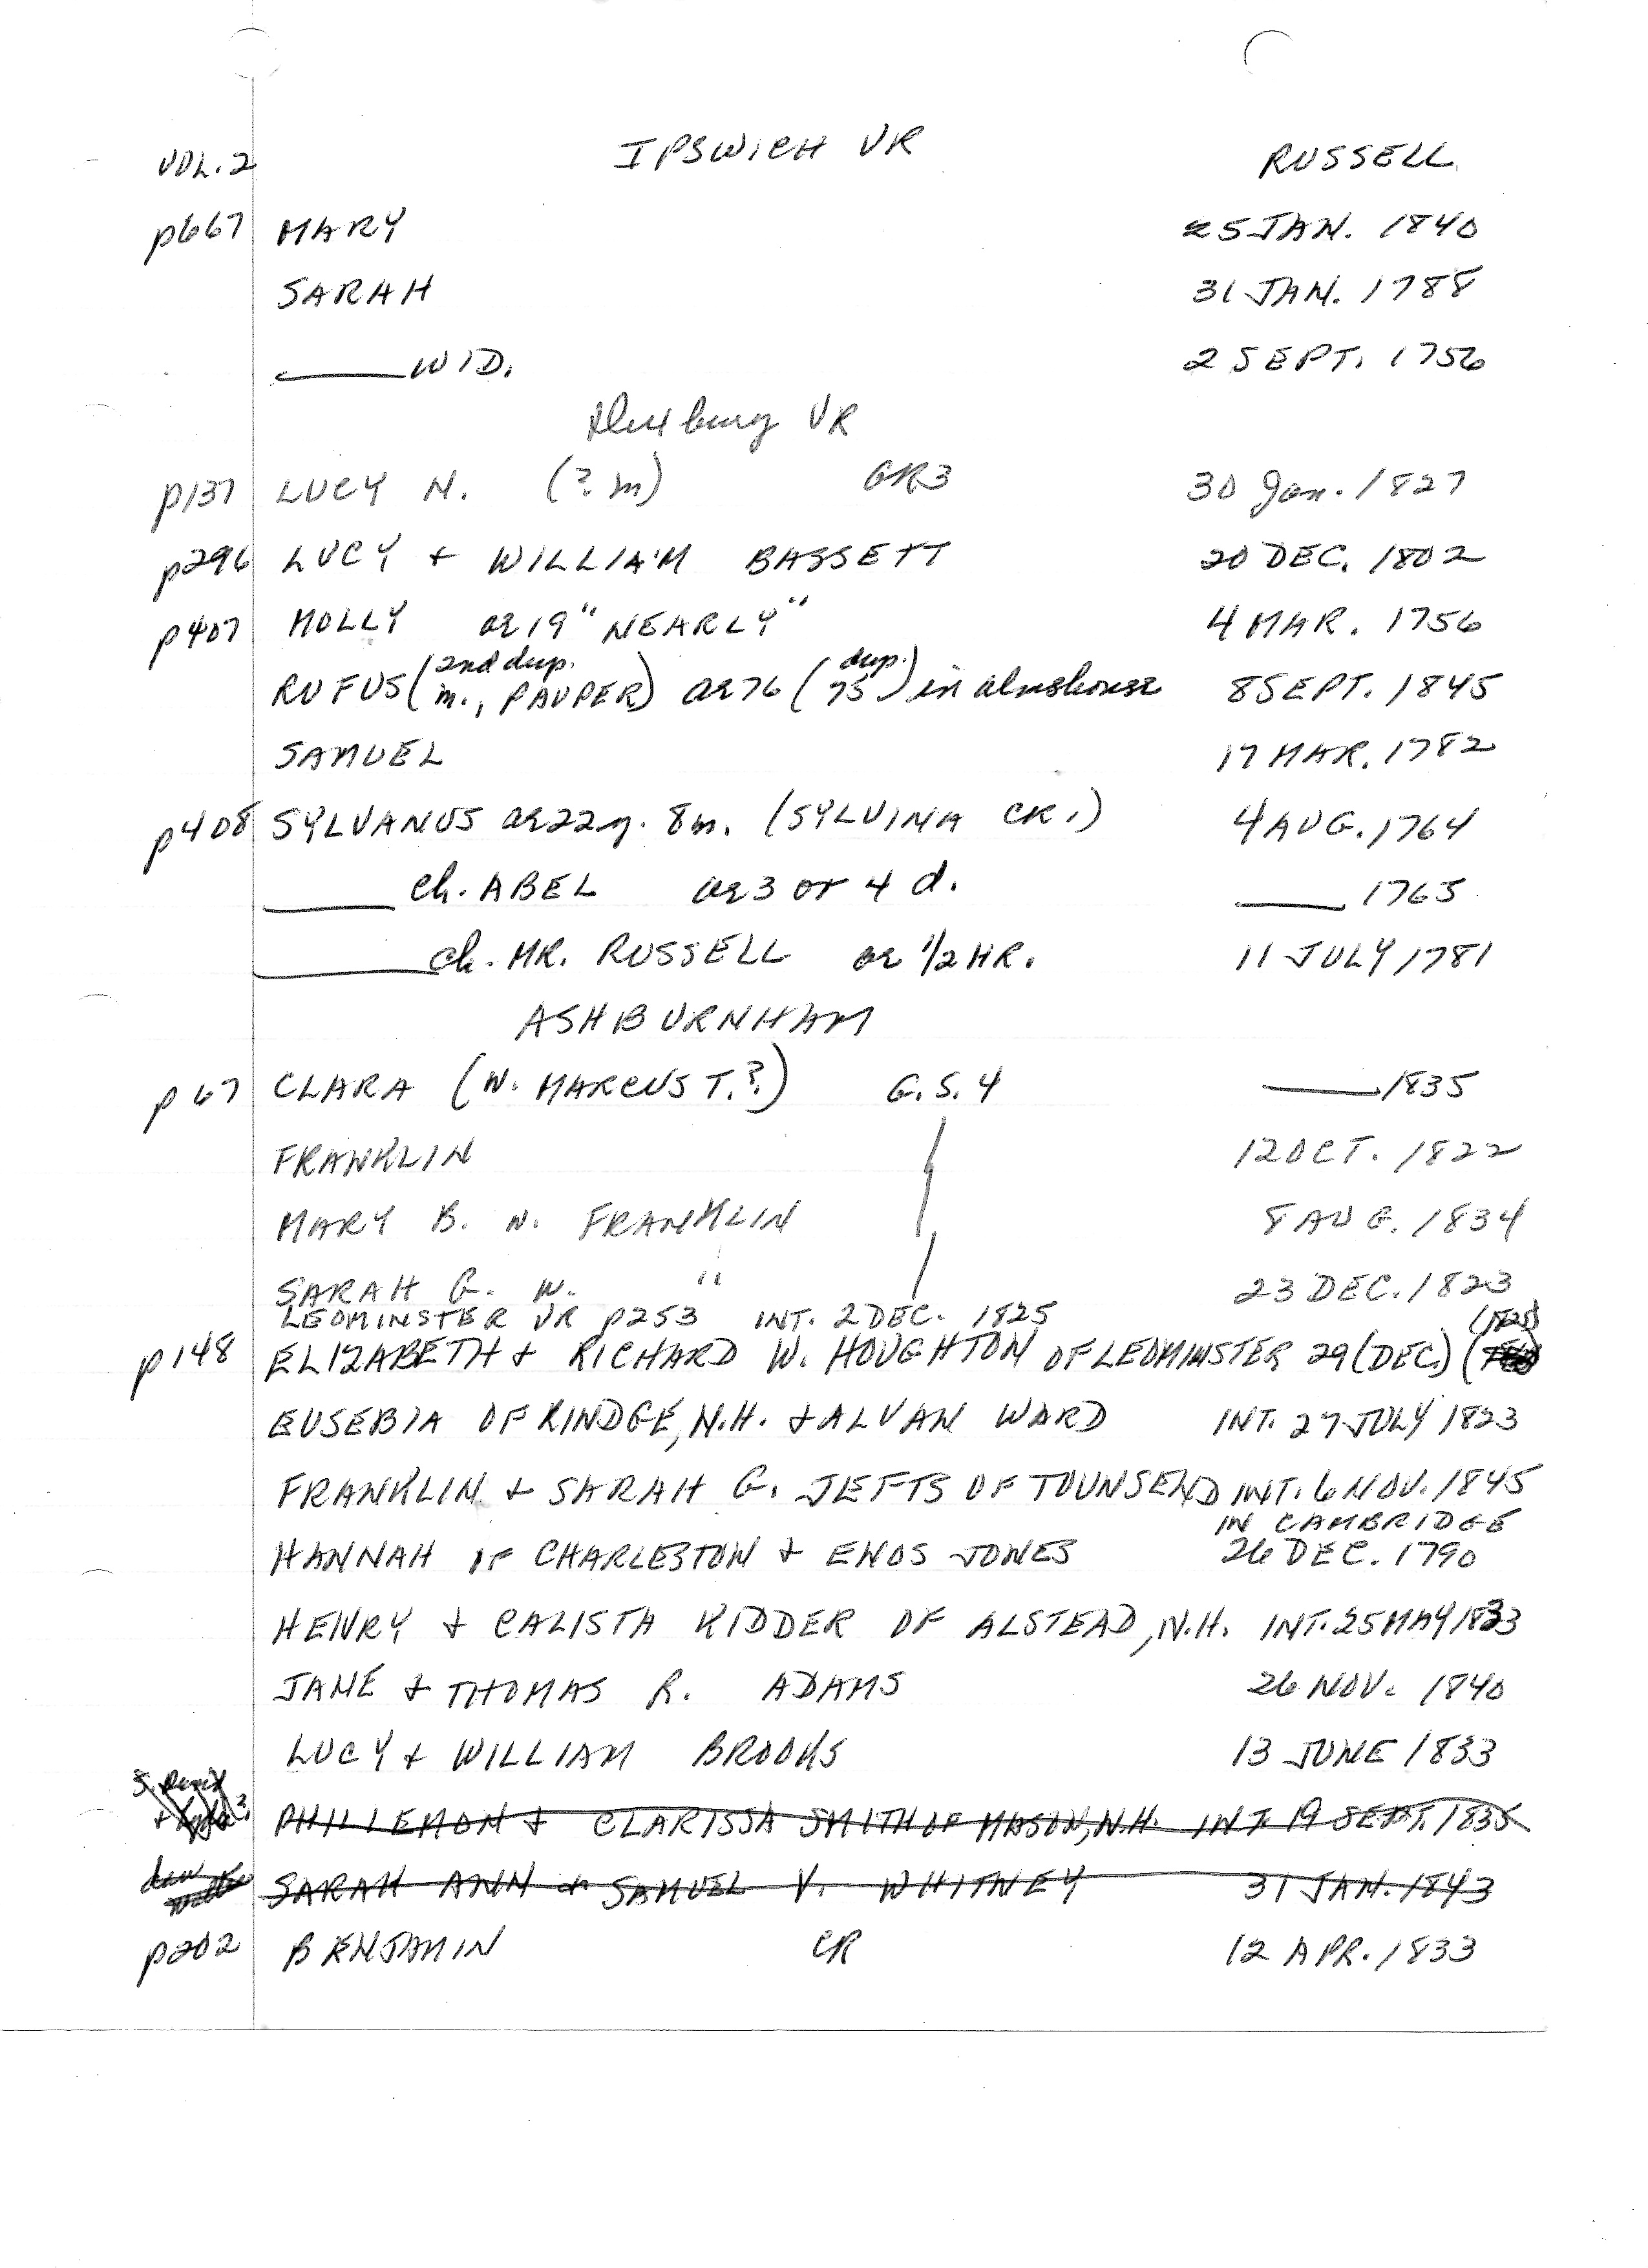 VOL. 2 IPSWICH VR RUSSELL
p667 MARY 25 JAN. 1840
SARAH 31 JAN. 1788
—— WID. 2 SEPT. 1756
Duxbury VR
p137 LUCY N. (? m) GR3 30 Jan. 1827
p296 LUCY + WILLIAM BASSETT 20 DEC. 1802
p407 MOLLY ae 19 "NEARLY" 4 MAR. 1756
2nd dup. dup.
RUFUS (m., PAUPER) ae 76 (75) in almshouse 8 SEPT. 1845
SAMUEL 17 MAR. 1782
p408 SYLVANUS ae 22 y. 8 m. (SYLVINA CR.) 4 AUG. 1764
—— ch. ABEL ae 3 or 4 d. —— 1765
—— ch. MR. RUSSELL ae 1/2 HR. 11 JULY 1781
ASHBURNHAM
p67 CLARA (W. MARCUS T.?) G.S.4 —— 1835
FRANKLIN 12 OCT. 1822
MARY B. W. FRANKLIN 8 AUG. 1834
SARAH G. W. " 23 DEC. 1823
LEOMINSTER VR p253 INT. 2 DEC. 1825 (1825)
p148 ELIZABETH + RICHARD W. HOUGHTON OF LEOMINSTER 29 (DEC.)
EUSEBIA OF RINDGE, N.H. + ALVAN WARD INT. 27 JULY 1823
FRANKLIN + SARAH G. JEFTS OF TOWNSEND INT. 6 NOV. 1845
IN CAMBRIDGE
HANNAH OF CHARLESTOWN + ENOS JONES 26 DEC. 1790
HENRY + CALISTA KIDDER OF ALSTEAD, N.H. INT. 25 MAY 1833
JANE + THOMAS R. ADAMS 26 NOV. 1840
LUCY + WILLIAM BROOKS 13 JUNE 1833
PHILLEMON + CLARISSA SMITH OF MASON, N.H. INT. 19 SEPT. 1835
SARAH ANN + SAMUEL V. WHITNEY 31 JAN. 1843
p202 BENJAMIN CR 12 APR. 1833